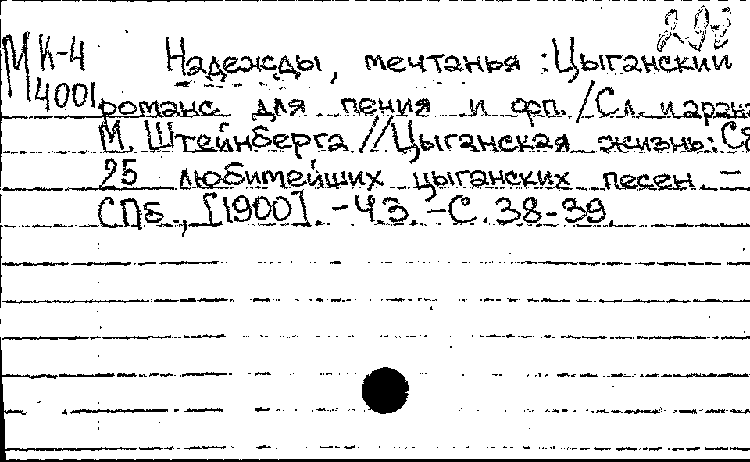 293
МК-4 Надежды, мечтанья : Цыганский
4001 романс для пения и фп. / Сл. и аранж
М. Штейнберга // Цыганская жизнь: Сб
25 любимейших цыганских песен. –
СПб., [1900]. – Ч.3. – С. 38-39.